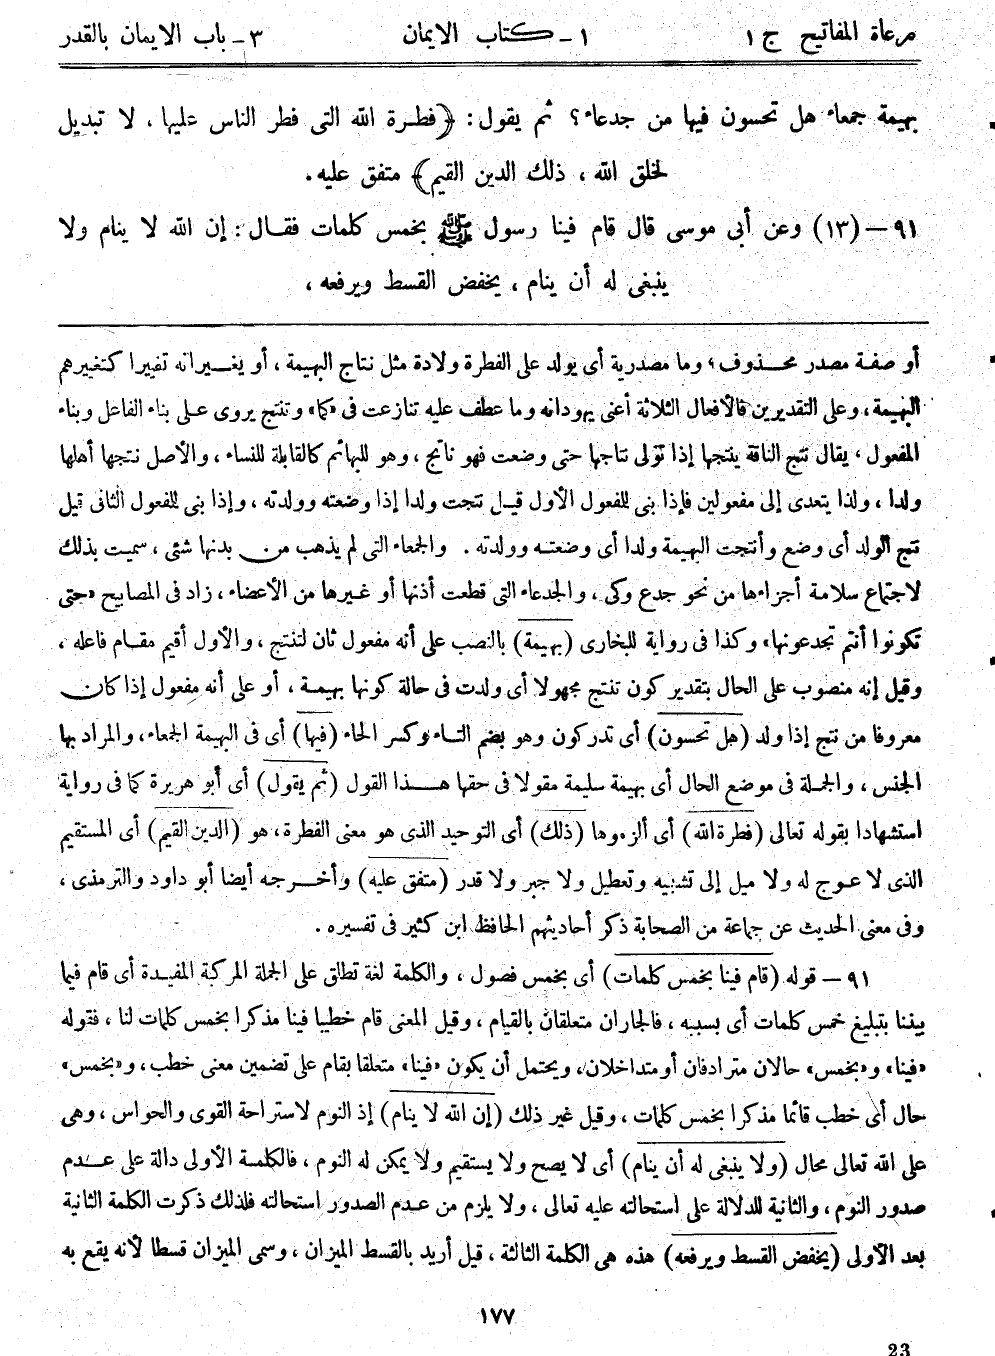 مرعاة المفاتيح ج ١
١ ـ كتاب الايمان
٣ ـ باب الايمان بالقدر
بهيمة جمعاء هل تحسون فيها من جدعاء؟ ثم يقول: ﴿فطرة الله التى فطر الناس عليها، لا تبديل
لخلق الله، ذلك الدين القيم﴾ متفق عليه.
٩١ – (١٣) وعن أبى موسى قال قام فينا رسول ﷺ بخمس كلمات فقال: إن الله لا ينام ولا
ينبغى له أن ينام، يخفض القسط ويرفعه،
أو صفة مصدر محذوف، وما مصدرية أى يولد على الفطرة ولادة مثل نتاج البهيمة، أو يغيرانه تغييرا كتغييرهم
البهيمة، وعلى التقديرين فالأفعال الثلاثة أعنى يهودانه وما عطف عليه تنازعت فى «كما» وتنتج يروى على بناء الفاعل وبناء
المفعول، يقال نتج الناقة ينتجها إذا تولى نتاجها حتى وضعت فهو ناتج، وهو للبهائم كالقابلة للنساء، والأصل نتجها أهلها
ولدا، ولذا يتعدى إلى مفعولين فإذا بنى للمفعول الأول قيل نتجت ولدا إذا وضعته وولدته، وإذا بنى للمفعول الثانى قيل
نتج الولد أى وضع وأنتجت البهيمة ولدا أى وضعته وولدته. والجمعاء التى لم يذهب من بدنها شئى، سميت بذلك
لاجتماع سلامة أجزاءها من نحو جدع وكى، والجدعاء التى قطعت أذنها أو غيرها من الأعضاء، زاد فى المصابيح «حتى
تكونوا أنتم تجدعونها» وكذا فى رواية للبخارى (بهيمة) بالنصب على أنه مفعول ثان لتنتج، والأول أقيم مقام فاعله،
وقيل إنه منصوب على الحال بتقدير كون تنتج مجهولا أى ولدت فى حالة كونها بهيمة، أو على أنه مفعول إذا كان
معروفا من نتج إذا ولد (هل تحسون) أى تدركون وهو بضم التاء وكسر الحاء (فيها) أى فى البهيمة الجمعاء، والمراد بها
الجنس، والجملة فى موضع الحال أى بهيمة سليمة مقولا فى حقها هذا القول (ثم يقول) أى أبو هريرة كما فى رواية
استشهادا بقوله تعالى (فطرة الله) أى ألزموها (ذلك) أى التوحيد الذى هو معنى الفطرة، هو (الدين القيم) أى المستقيم
الذى لا عوج له ولا ميل إلى تشبيه وتعطيل ولا جبر ولا قدر (متفق عليه) وأخرجه أيضا أبو داود والترمذى،
وفى معنى الحديث عن جماعة من الصحابة ذكر أحاديثهم الحافظ ابن كثير فى تفسيره.
٩١ – قوله (قام فينا بخمس كلمات) أى بخمس فصول، والكلمة لغة تطلق على الجملة المركبة المفيدة أى قام فيما
بيننا بتبليغ خمس كلمات أى بسببه، فالجاران متعلقان بالقيام، وقيل المعنى قام خطيبا فينا مذكرا بخمس كلمات لنا، فقوله
«فينا» و«بخمس» حالان مترادفان أو متداخلان، ويحتمل أن يكون «فينا» متعلقا بقام على تضمين معنى خطب، و«بخمس»
حال أى خطب قائما مذكرا بخمس كلمات، وقيل غير ذلك (إن الله لا ينام) إذ النوم لاستراحة القوى والحواس، وهى
على الله تعالى محال (ولا ينبغى له أن ينام) أى لا يصح ولا يستقيم ولا يمكن له النوم، فالكلمة الأولى دالة على عدم
صدور النوم، والثانية للدلالة على استحالته عليه تعالى، ولا يلزم من عدم الصدور استحالته فلذلك ذكرت الكلمة الثانية
بعد الأولى (يخفض القسط ويرفعه) هذه هى الكلمة الثالثة، قيل أريد بالقسط الميزان، وسمى الميزان قسطا لأنه يقع به
١٧٧
23